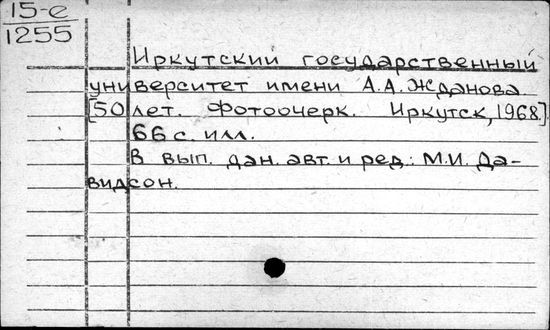 15-е
1255
Иркутский государственный
университет имени А.А.Жданова.
[50 лет. Фотоочерк. Иркутск, 1968].
66 с. илл.
В вып. дан. авт. и ред.: М.И. Да-
видсон.